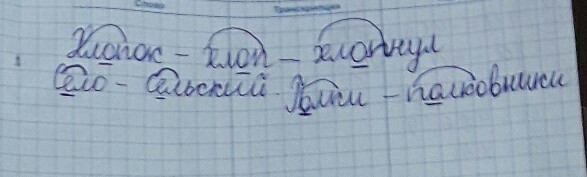 Слово Транскрипция
Хлопок - хлоп - хлопнул
Село - сельский. Полки - полковники